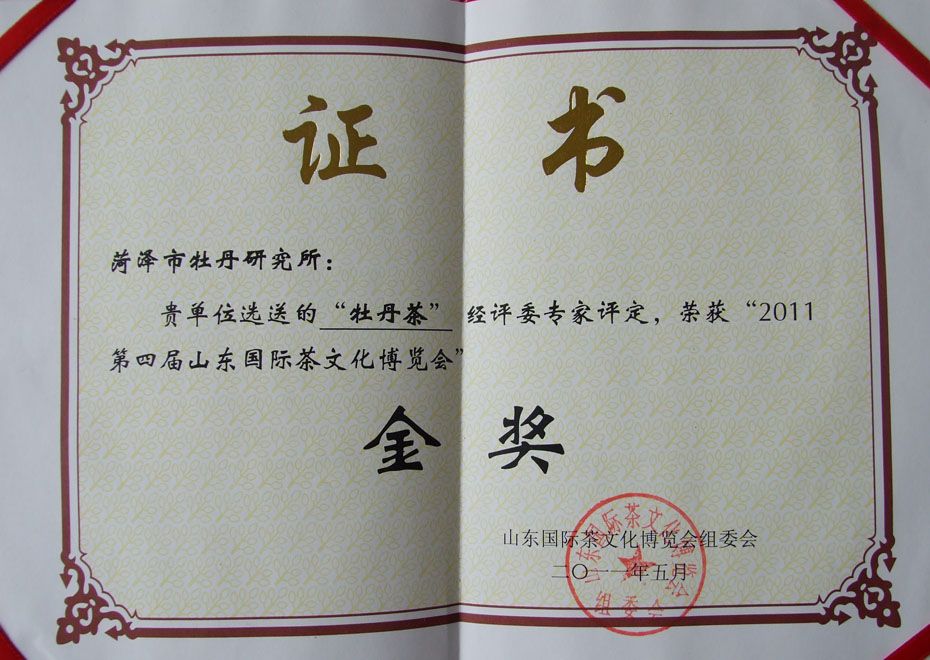 证书
菏泽市牡丹研究所：
贵单位选送的“牡丹茶”经评委专家评定，荣获“2011
第四届山东国际茶文化博览会”
金奖
山东国际茶文化博览会组委会
二〇一一年五月
山东国际茶文化博览会
组委会